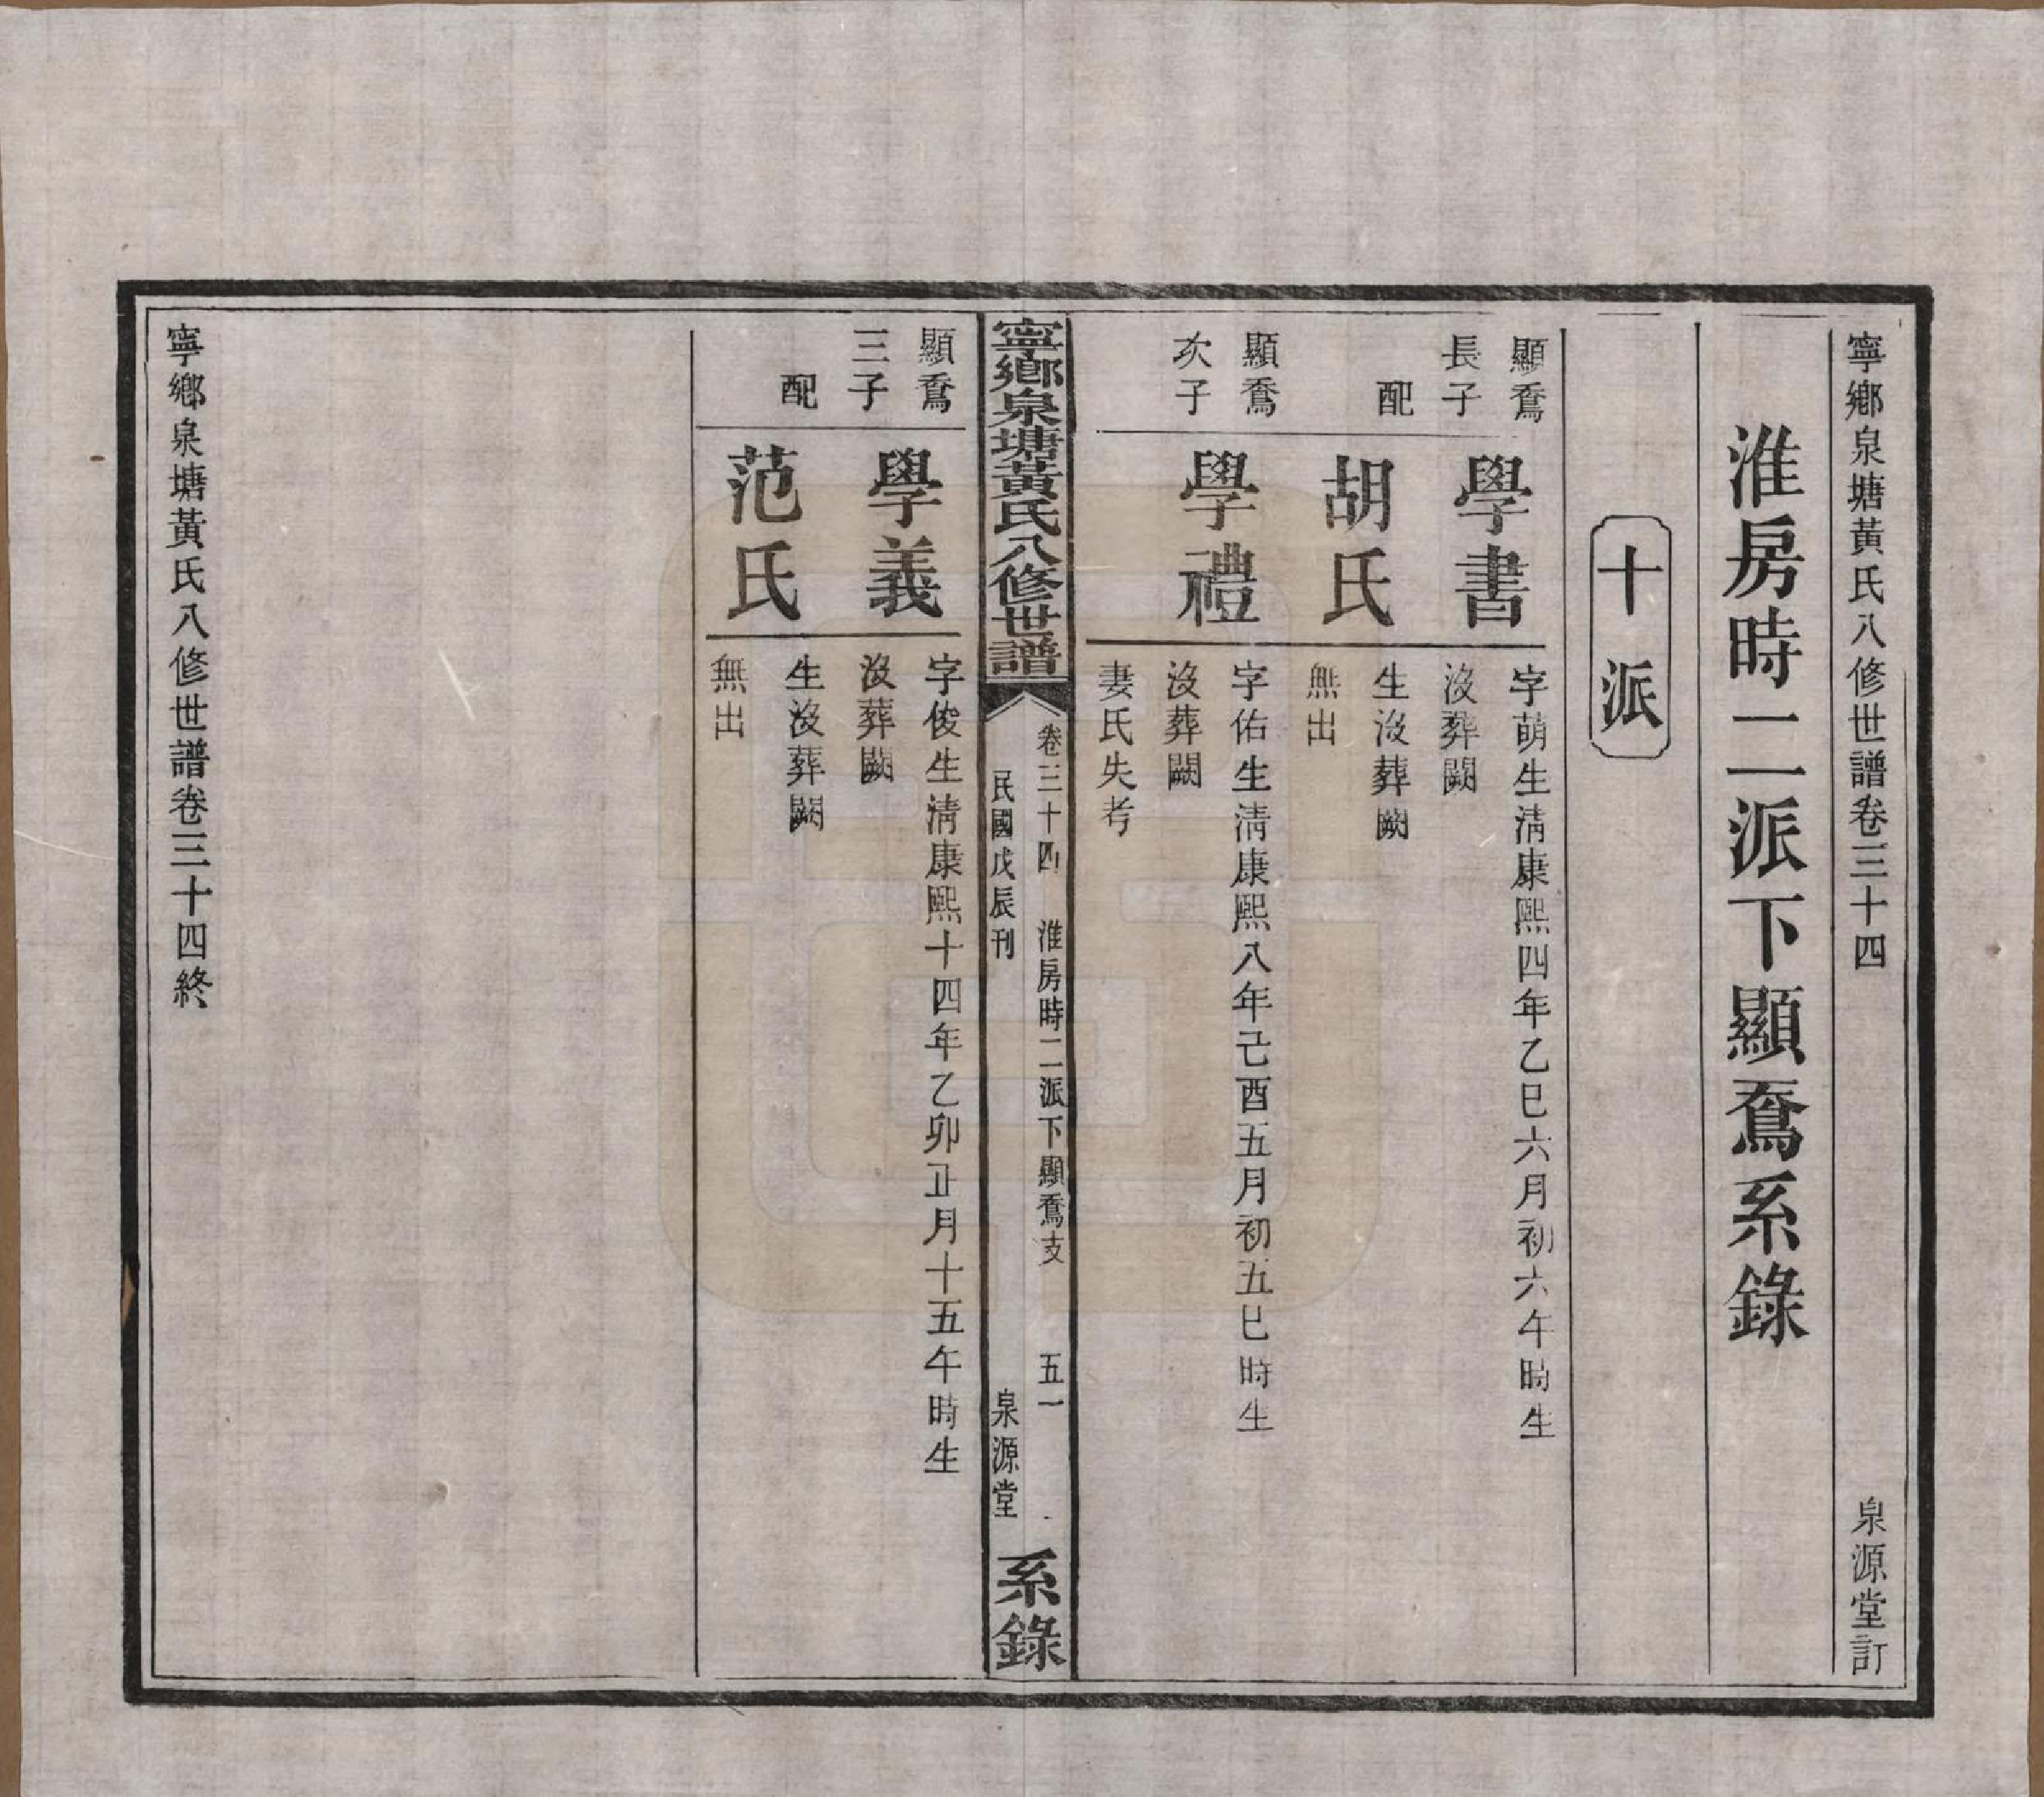 寧鄉泉塘黃氏八修世譜卷三十四 泉源堂訂
淮房時二派下顯系錄
十派
顯
長子
學書
字萌生清康熙四年乙巳六月初六午時生
沒葬闕
配
胡氏
生沒葬闕
無出
顯
次子
學禮
字佑生清康熙八年己酉五月初五巳時生
沒葬闕
妻氏失考
寧鄉泉塘黃氏八修世譜
卷三十四 淮房時二派下顯支 五一
民國戊辰刊 泉源堂
系錄
顯
三子
學義
字俊生清康熙十四年乙卯正月十五午時生
沒葬闕
配
范氏
生沒葬闕
無出
寧鄉泉塘黃氏八修世譜卷三十四終